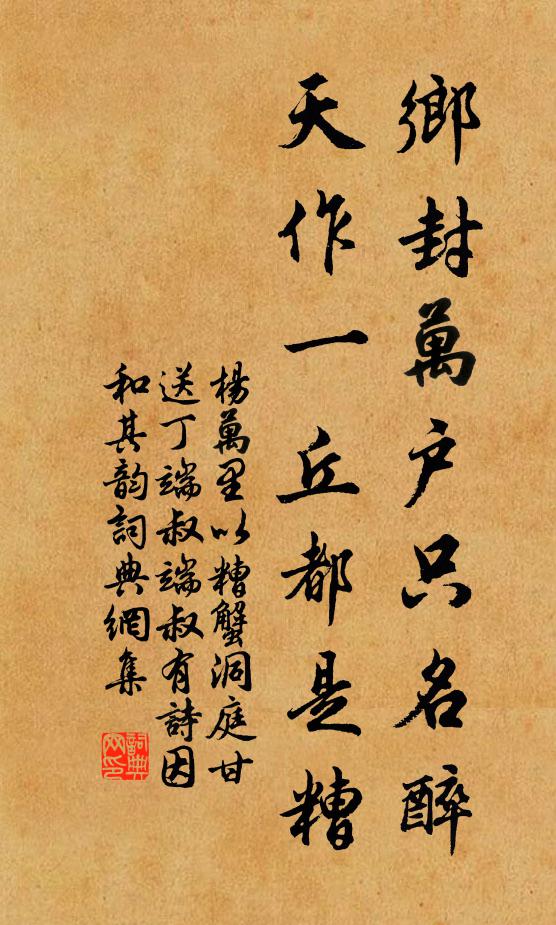 鄉封萬户只名醉
天作一丘都是糟
楊萬里以糟蟹洞庭甘
送丁端叔端叔有詩因
和其韵詞典網集
詞典
网印